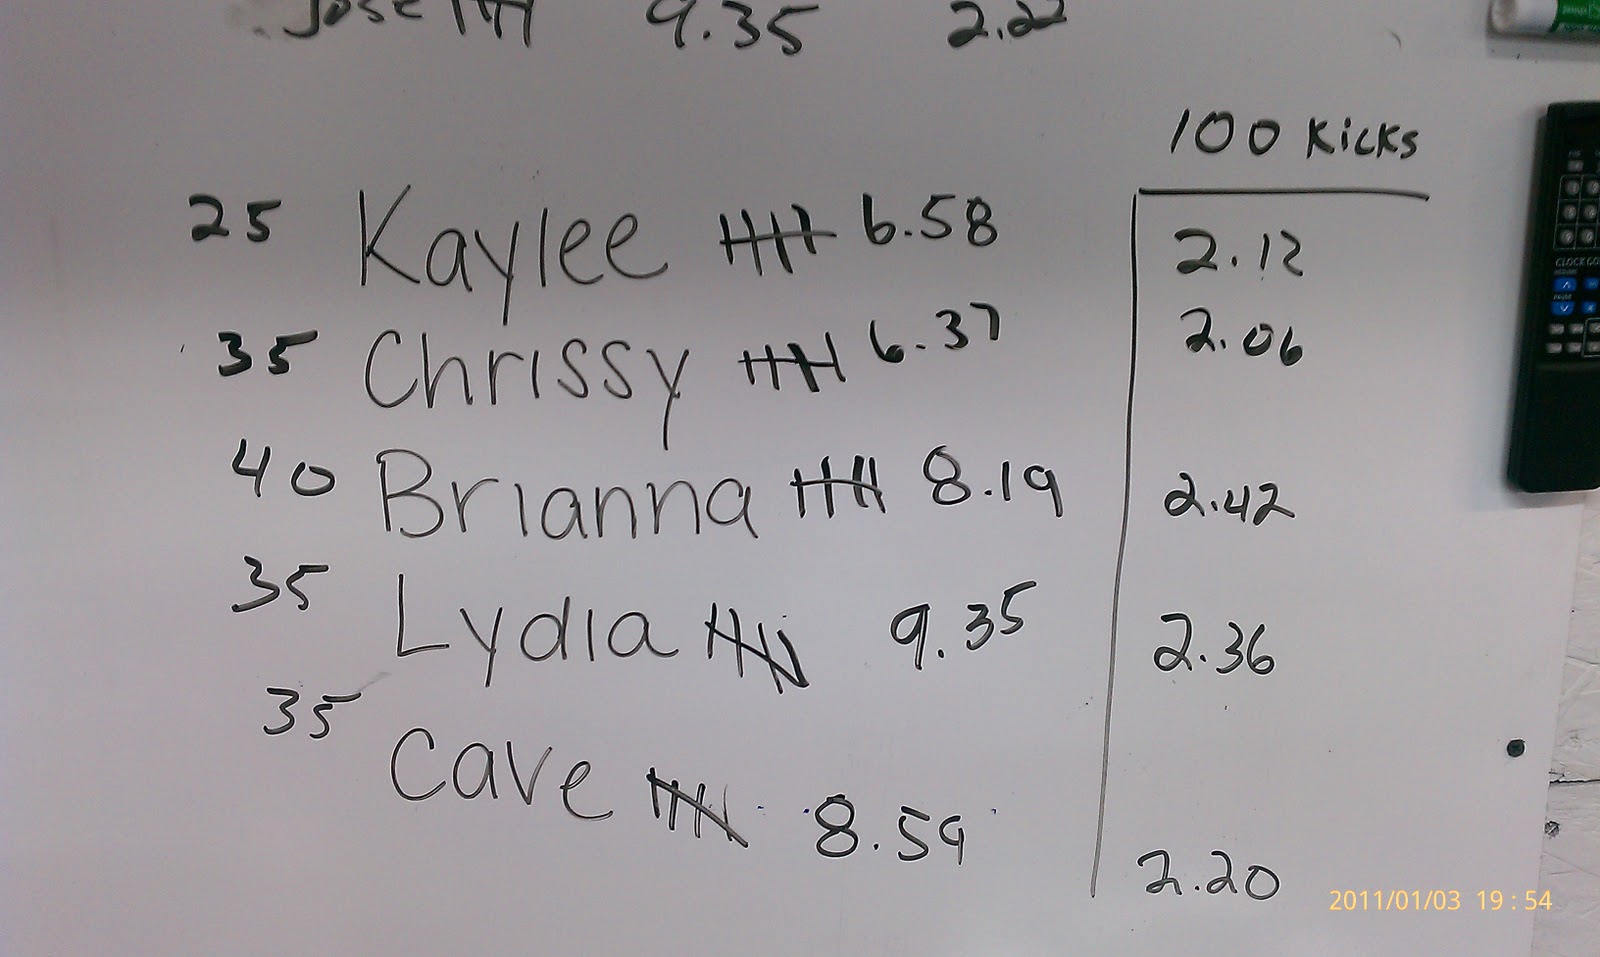 Jose 9.35 2.22
100 Kicks
25 Kaylee 6.58 2.12
35 Chrissy 6.37 2.06
40 Brianna 8.19 2.42
35 Lydia 9.35 2.36
35 Cave 8.59 2.20
2011/01/03 19:54